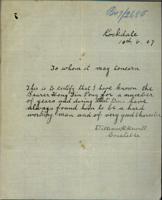 Rockdale
10th 6. 07
To whom it may concern
This is to certify that I have known the
Bearer Hong Tin Pong for a number
of years and during that time have
always found him to be a hard
working man and of very good character
Constable